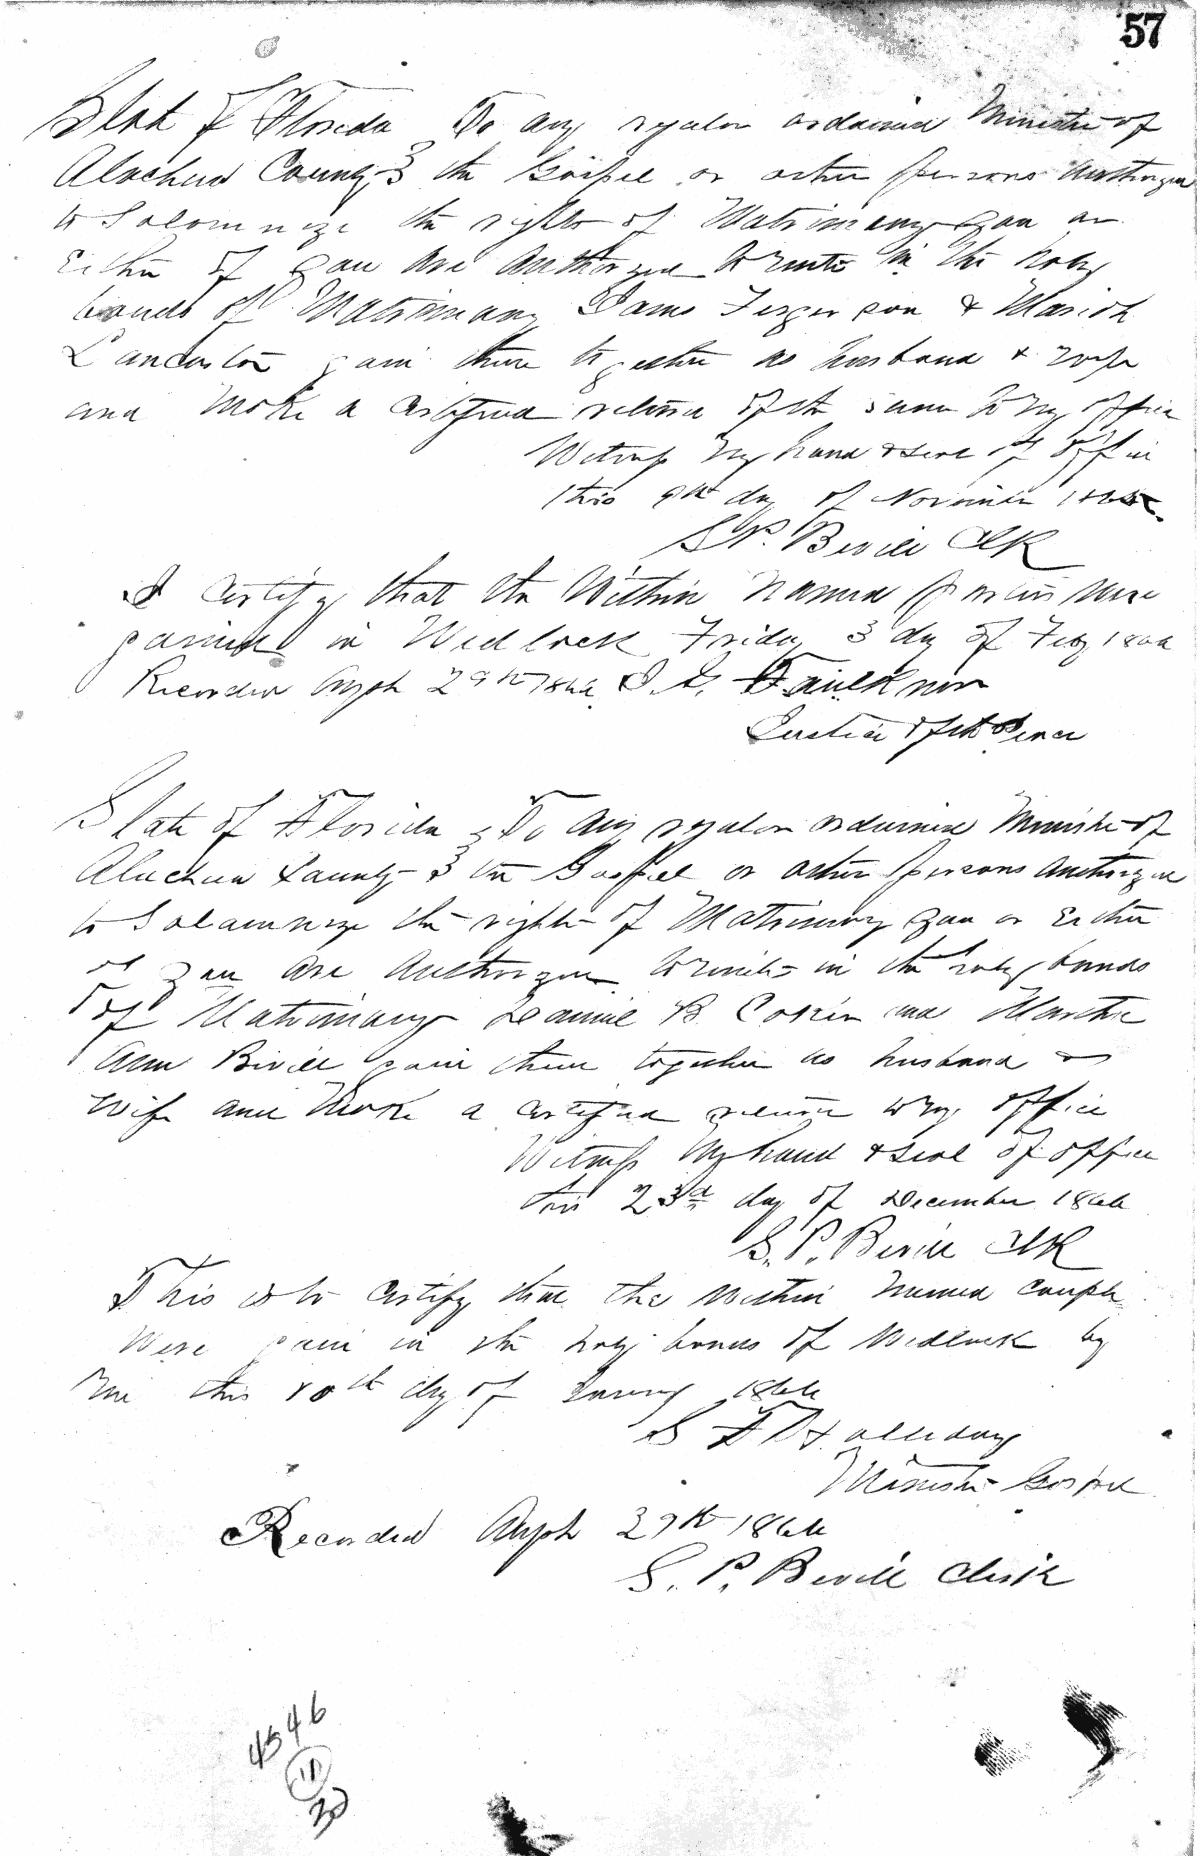 57
State of Florida To any regular ordained Minister of
Alachua County } the Gospel or other persons Authorized
to Solomnize the rights of Matrimony you or
Either of you are Authorized to unite in the holy
bonds of Matrimony James Ferguson & Mariah
Lancaster join them together as husband & wife
and Make a Certified return of the same to my office
Witness my hand & seal of office
this 9th day of November 1865
S. P. Bevill Clk
I Certify that the Within Named persons were
joined in Wedlock Friday 3 day of Feby 1866
Recorded 29th 1866
Justice of the Peace
State of Florida } To Any regular ordained Minister of
Alachua County } the Gospel or other persons Authorized
to Solaimnize the rights of Matrimony you or Either
of you are Authorized to unite in the holy bonds
of Matrimony Daniel B. and Martha
Ann Bevill join them together as husband &
Wife and Make a Certified return to my office
Witness my hand & seal of office
this 23d day of December 1866
S. P. Bevill Clk
This is to Certify that the Within Named Couple
Were join in the holy bonds of Wedlock by
me this 10th day of 1866
S Halliday
Minister Gospel
Recorded 29th 1866
S. P. Bevill Clerk
4546
11